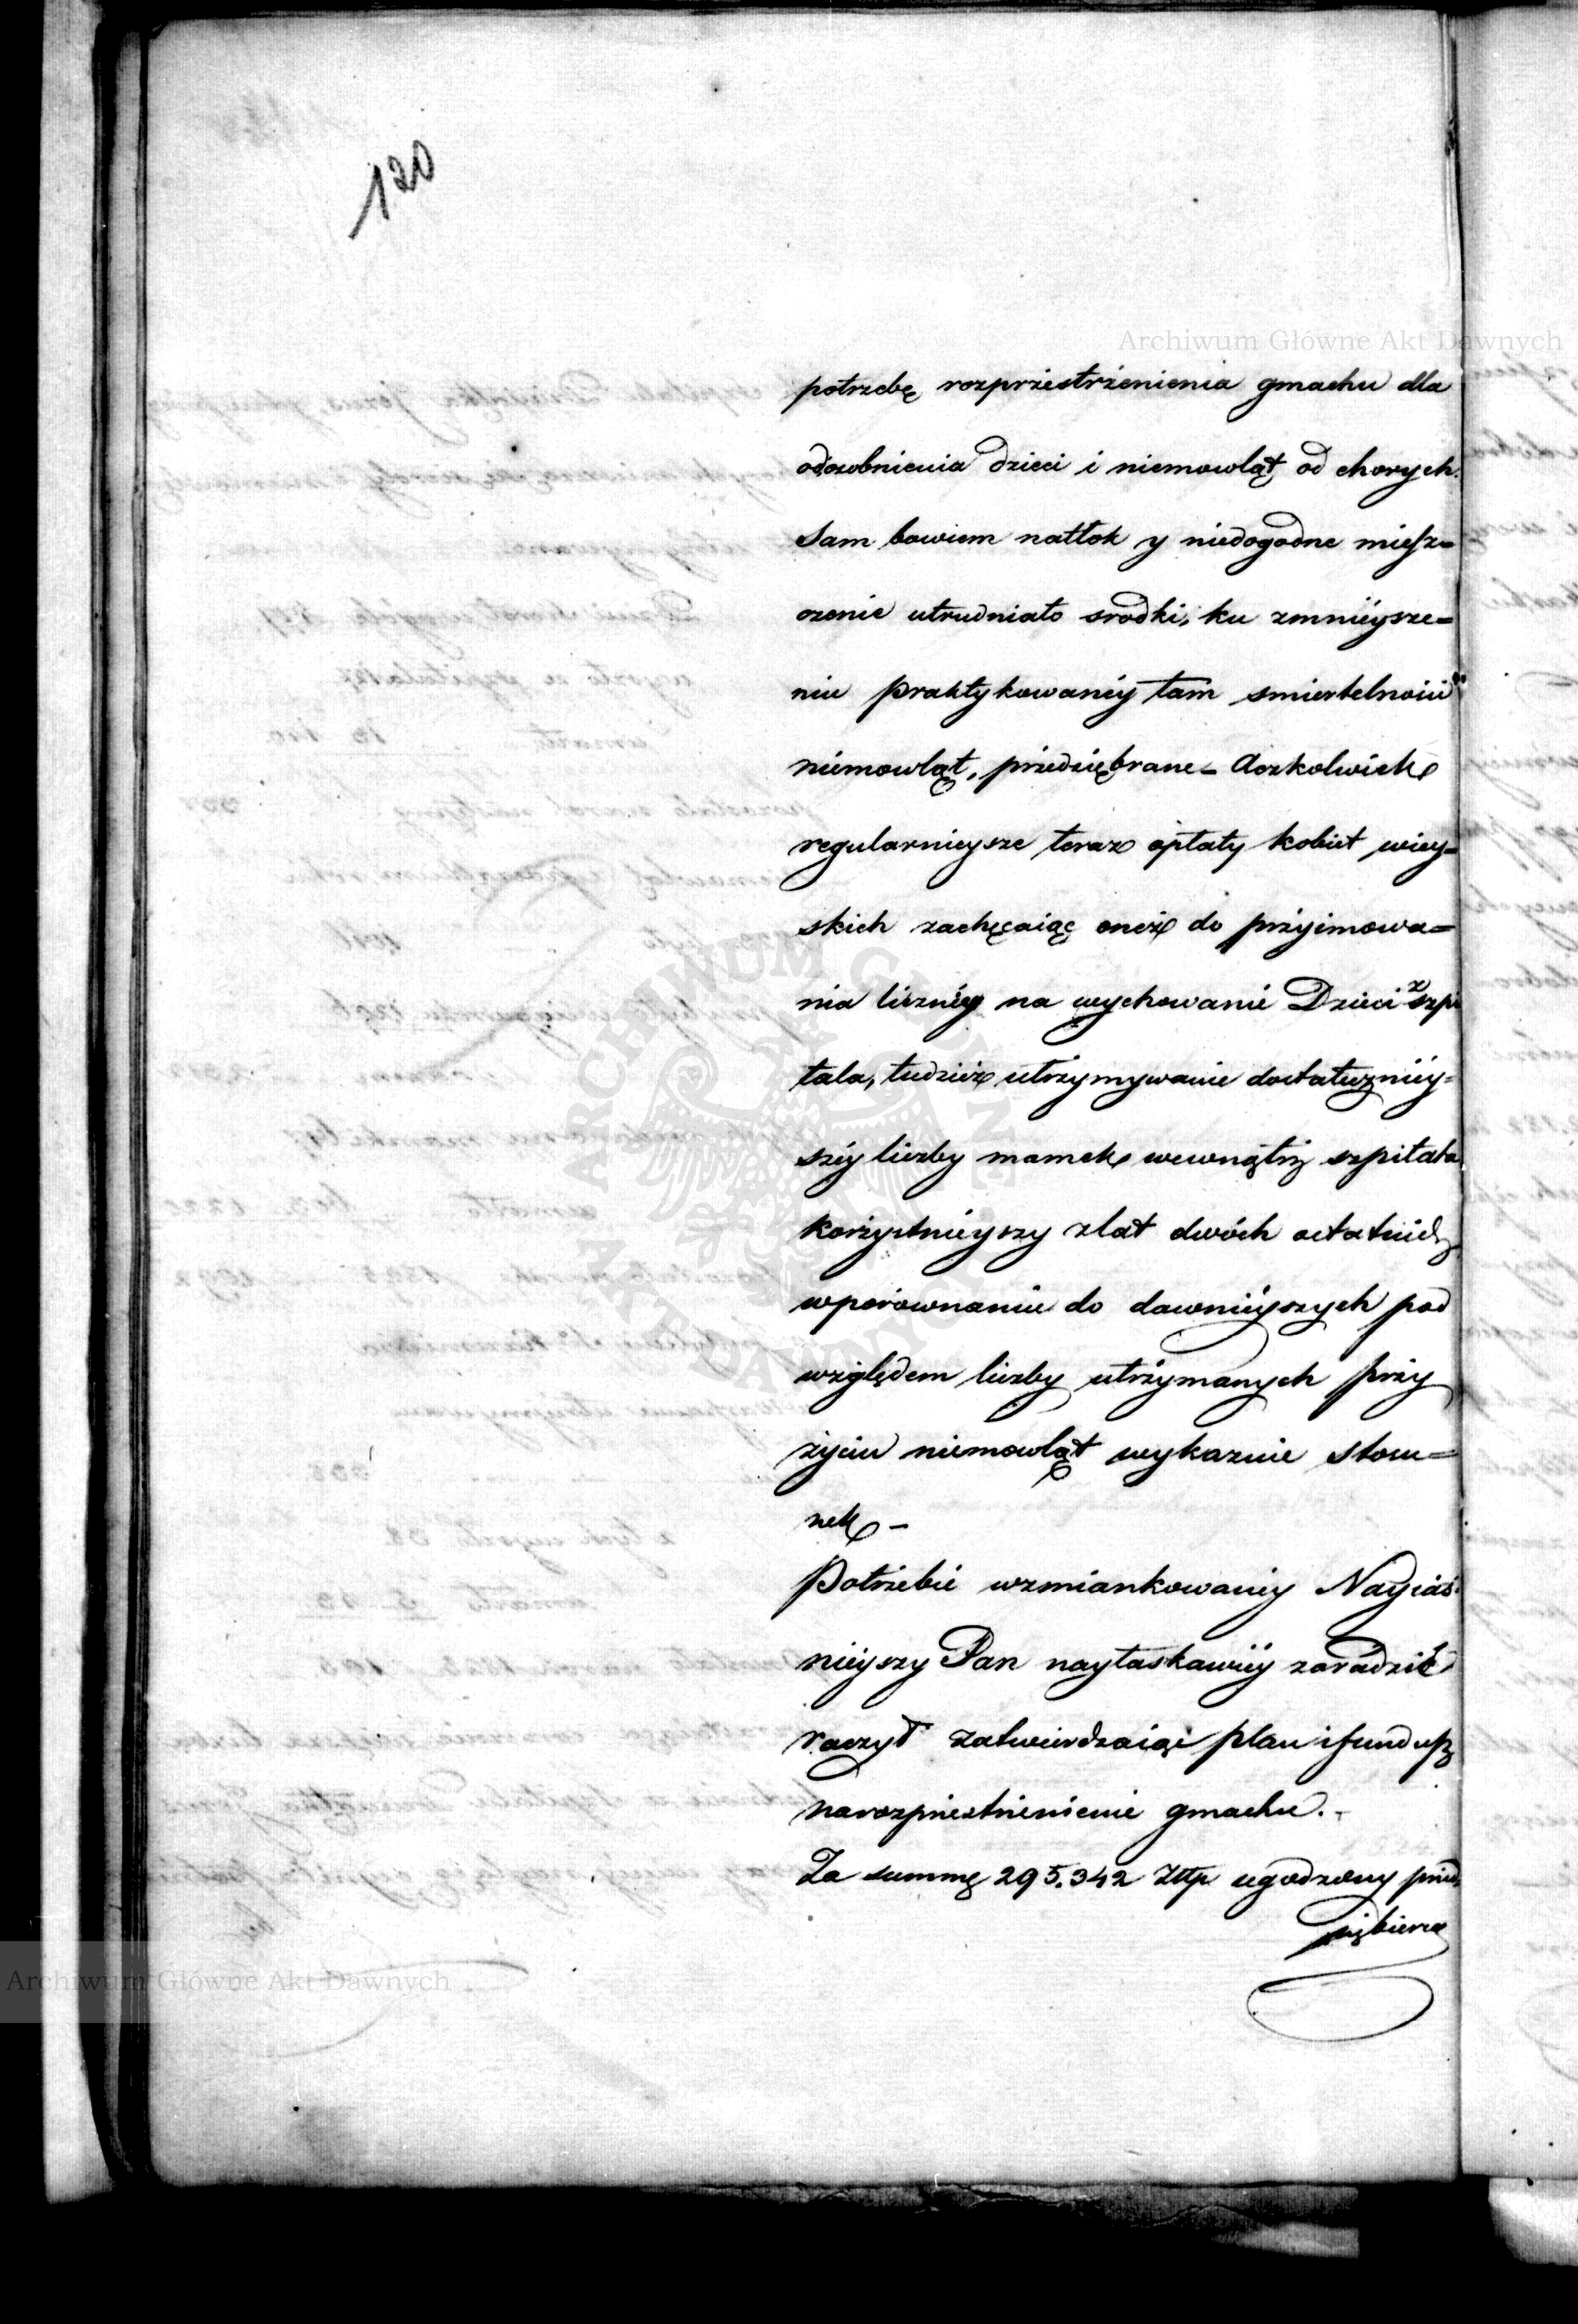 120
Archiwum Główne Akt Dawnych
potrzebę rozprzestrżenienia gmachu dla
odosobnienia dzieci i niemowląt od chorych.
Sam bowiem natłok y niedogodne miesz=
czenie utrudniało srodki, ku zmnieysze=
niu praktykowaney tam smiertelności
niemowląt, przedzięębrane – Aczkolwiek
regularnieysze teraz opłaty kobiet wiey=
skich zachęcaiąc oneż do przyimowa=
nia liczniey na wychowanie Dzieci z szpi
tala, tudzież utrzymywanie dostateczniey=
szey liczby mamek wewnątrz szpitala
korzystnieyszy z lat dwóch ostatnich
w porownaniu do dawnieyszych pod
względem liczby utrzymanych przy
życiu niemowląt wykazuie stosu=
nek –
Potrzebie wzmiankowaney Nayiaś=
nieyszy Pan nayłaskawiey zaradzić
raczył zatwierdzaiąc plan i fundusz
na rozprzestrzenienie gmachu. –
Za summę 295.342 Złtp ugodzony przed
siębierca
ARCHIWUM GŁÓWNE AKT DAWNYCH
Archiwum Główne Akt Dawnych